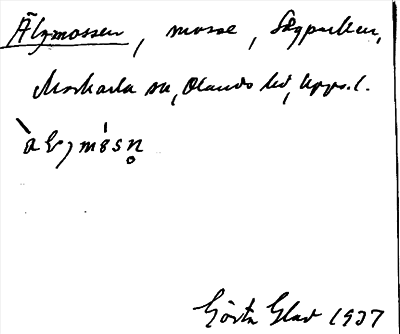 Älgmossen, mosse, Skyparken,
Morkarla sn, Olands hd, Upps. l.
Gösta Glad 1937